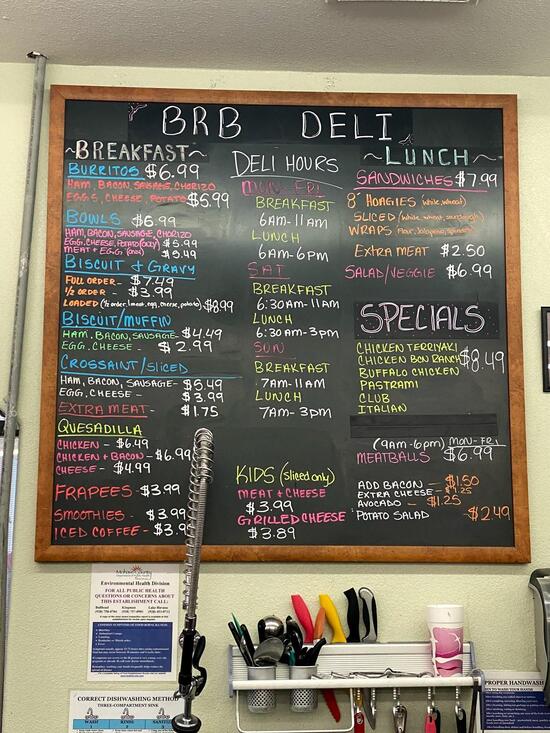 BRB DELI
~BREAKFAST~
BURRITOS $6.99
HAM, BACON, SAUSAGE, CHORIZO
EGGS, CHEESE, POTATO $5.99
BOWLS $6.99
HAM, BACON, SAUSAGE, CHORIZO
EGG, CHEESE, POTATO (only) $5.99
MEAT + EGG (only) $5.49
BISCUIT + GRAVY
FULL ORDER - $7.49
1/2 ORDER - $3.99
LOADED (1/2 order, 1 meat, egg, cheese, potato) $8.99
BISCUIT/MUFFIN
HAM, BACON, SAUSAGE - $4.49
EGG, CHEESE - $2.99
CROSSAINT/SLICED
HAM, BACON, SAUSAGE - $5.49
EGG, CHEESE - $3.99
EXTRA MEAT - $1.75
QUESADILLA
CHICKEN - $6.49
CHICKEN + BACON - $6.99
CHEESE - $4.99
FRAPEES - $3.99
SMOOTHIES - $3.99
ICED COFFEE - $3.99
DELI HOURS
MON-FRI
BREAKFAST
6AM-11AM
LUNCH
6AM-6PM
SAT
BREAKFAST
6:30AM-11AM
LUNCH
6:30AM-3PM
SUN
BREAKFAST
7AM-11AM
LUNCH
7AM-3PM
KIDS (sliced only)
MEAT + CHEESE
$3.99
GRILLED CHEESE
$3.89
~LUNCH~
SANDWICHES $7.99
8" HOAGIES (White, wheat)
SLICED (White, wheat, sourdough)
WRAPS (Flour, Jalapeno, Spinach)
EXTRA MEAT $2.50
SALAD/VEGGIE $6.99
SPECIALS
CHICKEN TERRIYAKI
CHICKEN BCN RANCH $8.49
BUFFALO CHICKEN
PASTRAMI
CLUB
ITALIAN
(9AM-6PM) MON-FRI
MEATBALLS $6.99
ADD BACON - $1.50
EXTRA CHEESE - $1.25
AVOCADO - $1.25
POTATO SALAD - $2.49
Mohave County
Environmental Health Division
FOR ALL PUBLIC HEALTH
QUESTIONS OR CONCERNS ABOUT
THIS ESTABLISHMENT CALL:
Bullhead Kingman Lake Havasu
CORRECT DISHWASHING METHOD
THREE-COMPARTMENT SINK
WASH RINSE SANITIZE
PROPER HANDWASH